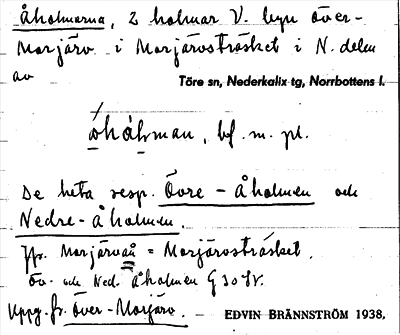 Åholmarna, 2 holmar V. byn Över-
Morjärv i Morjärvsträsket i N. delen
av
Töre sn, Nederkalix tg, Norrbottens l.
åhåḷman, bf. m. pl.
De heta resp. Övre-Åholmen och
Nedre-Åholmen.
Jfr. Morjärvån = Morjärvsträsket.
Öv. och Ned. Åholmen G 30 Sv.
Uppg. fr. Över-Morjärv.
EDVIN BRÄNNSTRÖM 1938.